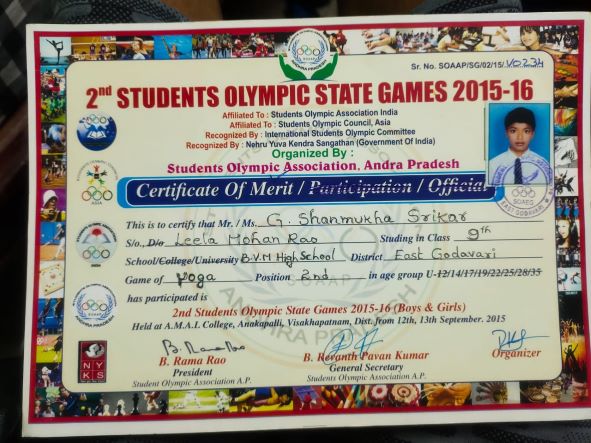 STUDENTS OLYMPIC ASSOCIATION
SOAAP
ANDHRA PRADESH
Sr. No. SOAAP/SG/02/15/V0234
2nd STUDENTS OLYMPIC STATE GAMES 2015-16
Affiliated To : Students Olympic Association India
Affiliated To : Students Olympic Council, Asia
Recognized By : International Students Olympic Committee
Recognized By : Nehru Yuva Kendra Sangathan (Government Of India)
Organized By :
Students Olympic Association, Andra Pradesh
Certificate Of Merit / Participation / Official
This is to certify that Mr. / Ms. G. Shanmukha Srikar
S/o., D/o Leela Mohan Rao Studing in Class 9th
School/College/University B.V.M High School District East Godavari
Game of Yoga Position 2nd in age group U-12/14/17/19/22/25/28/35
has participated is
2nd Students Olympic State Games 2015-16 (Boys & Girls)
Held at A.M.A.I. College, Anakapalli, Visakhapatnam, Dist. from 12th, 13th September. 2015
B. Rama Rao
B. Rama Rao
President
Student Olympic Association A.P.
B. Revanth Pavan Kumar
General Secretary
Student Olympic Association A.P.
Organizer
ASIA
SOAEG
EAST GODAVARI
NYKS
SOAAP
ANDHRA PRADESH